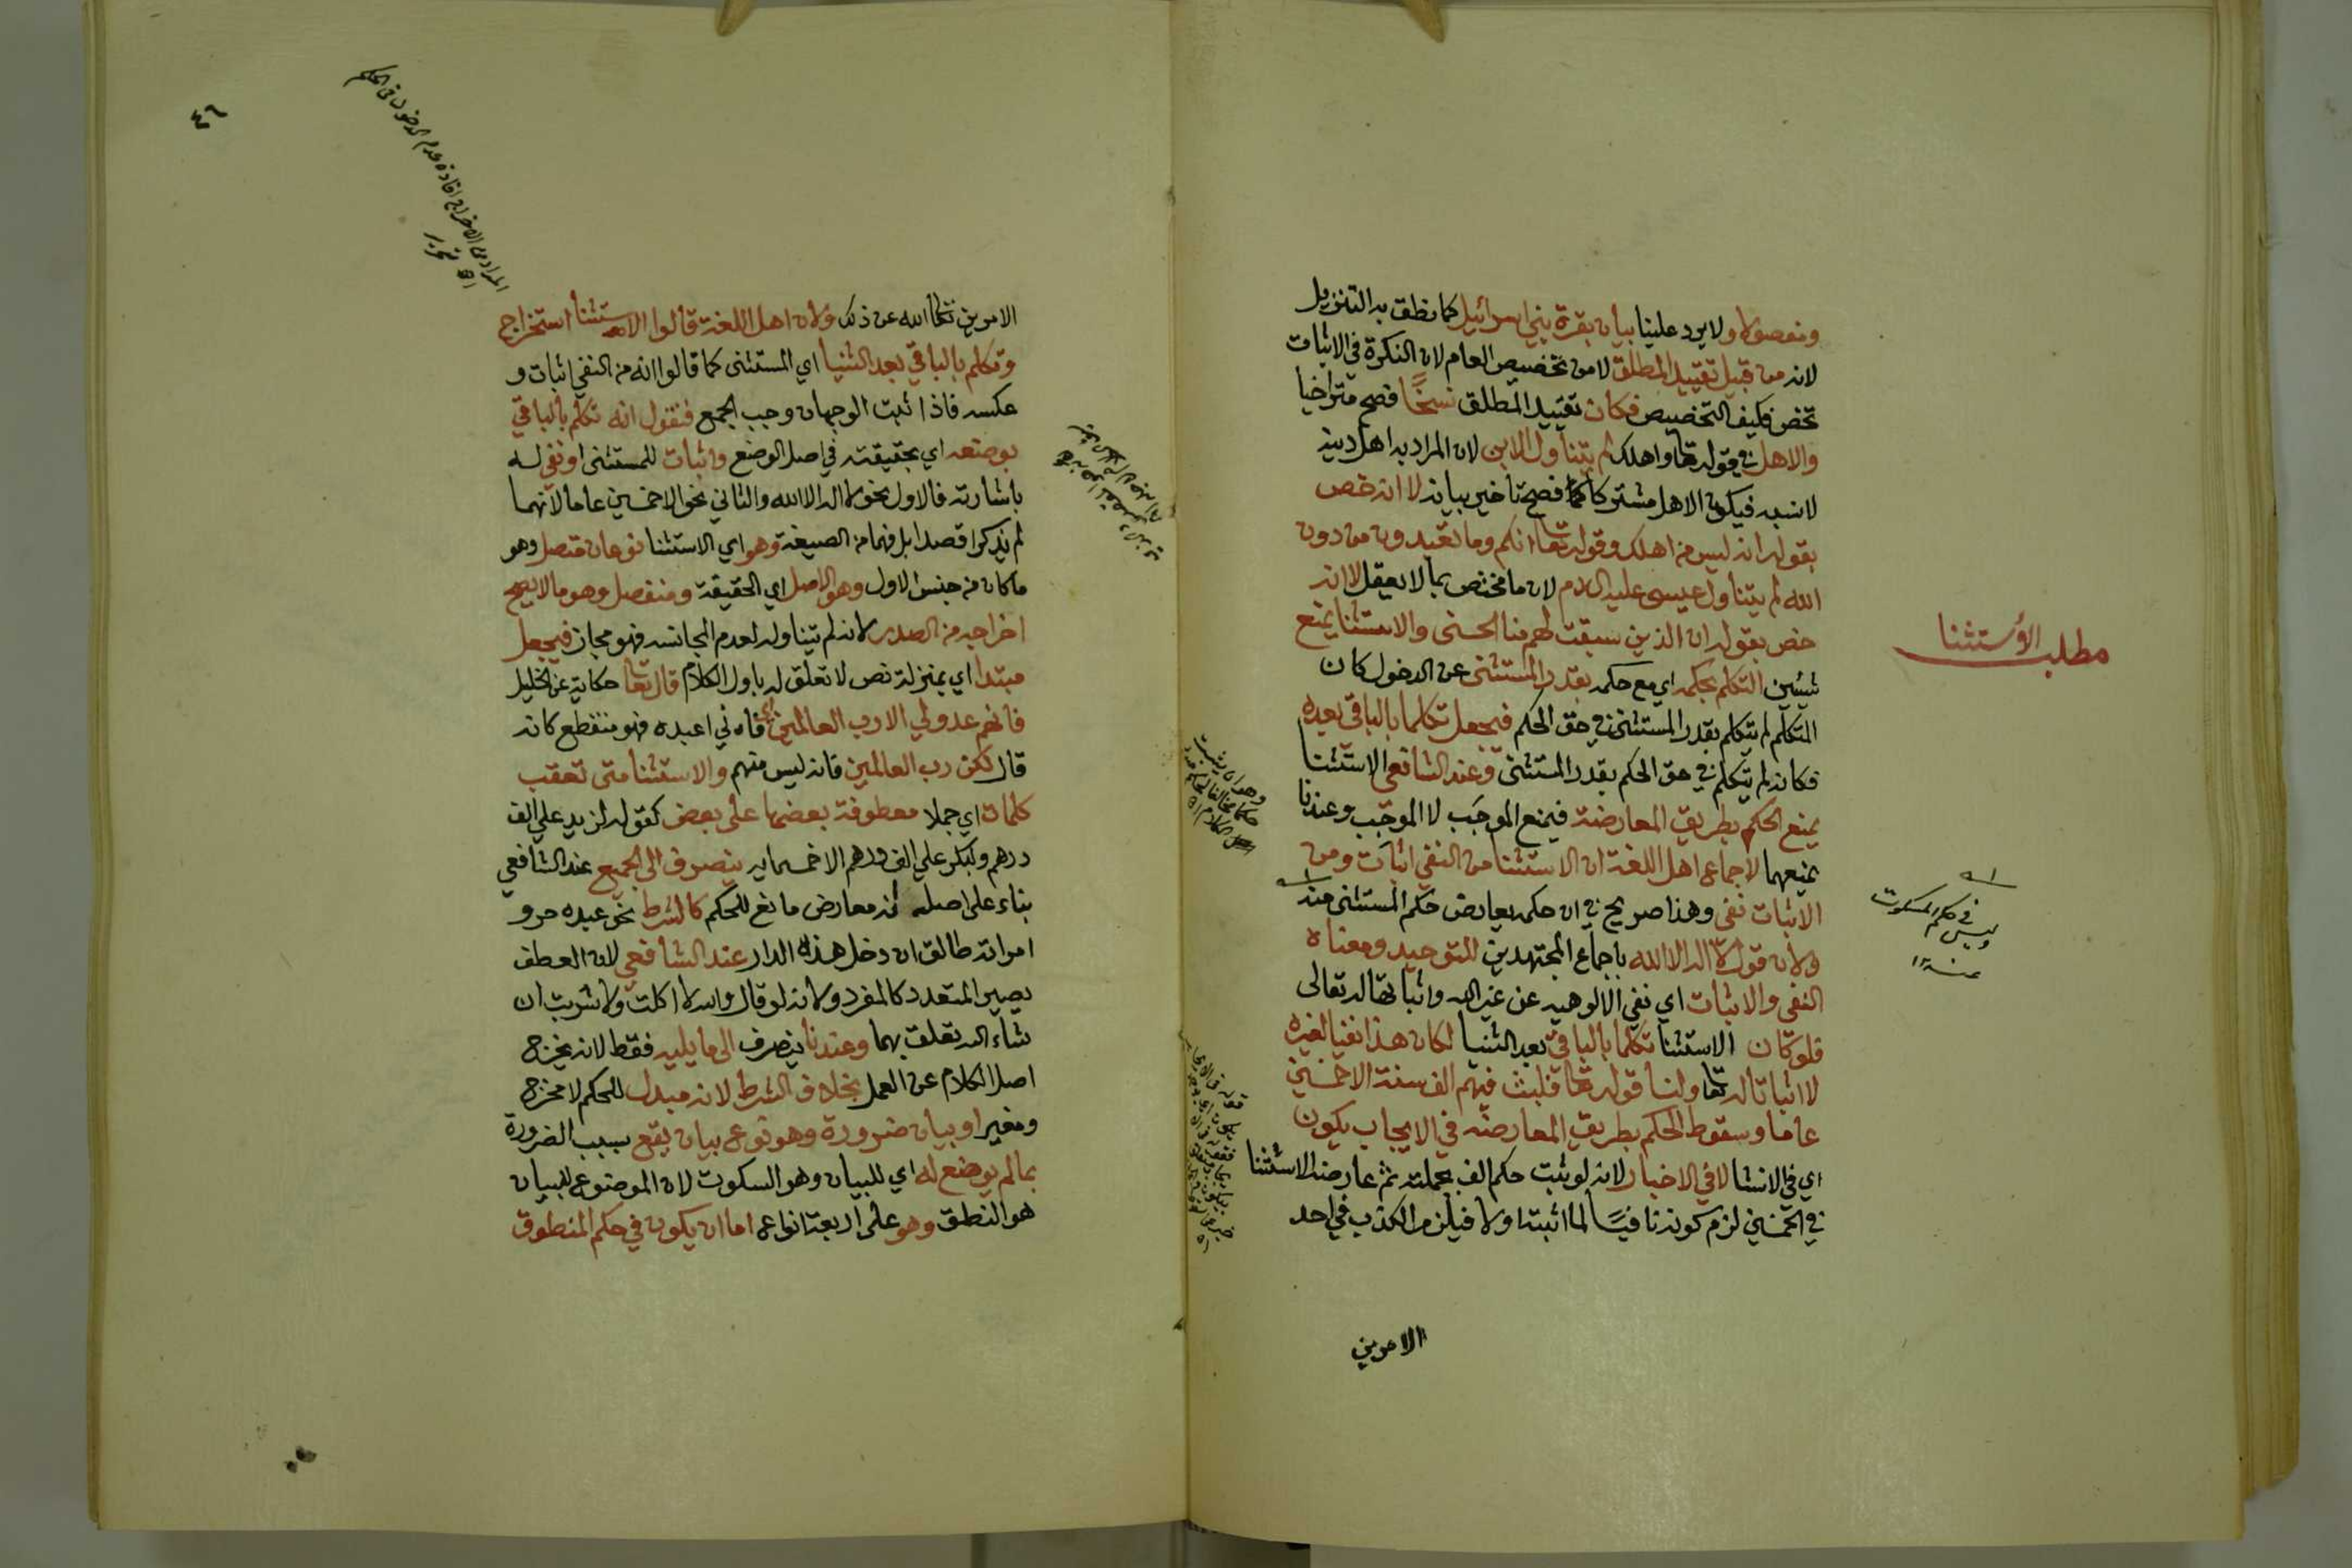 ومفصولا ولا يرد علينا بيان بقرة بني اسرائيل كما نطق به التنزيل
لانه من قبيل تقييد المطلق لا من تخصيص العام لان النكرة في الاثبات
تخص فكيف التخصيص فكان تقييد المطلق نسخًا فصح متراخيا
والاهل في قوله تعا واهلك لم يتناول الابن لان المراد به اهل دينه
لا نسبه فيكون الاهل مشتركا فصح تاخير بيانه لا انه خص
بقوله انه ليس من اهلك وقوله تعا انكم وما تعبدون من دون
الله لم يتناول عيسى عليه السلام لان ما مختص بما لا يعقل لا انه
خص بقوله ان الذين سبقت لهم منا الحسنى والاستثنا يمنع
مطلب الأستثنا
التكلم بحكمه اي مع حكمه بقدر المستثنى عن الدخول كان
المتكلم لم يتكلم بقدر المستثنى في حق الحكم فيجعل تكلما بالباقي بعده
فكانه لم يتكلم في حق الحكم بقدر المستثنى وعند الشافعي الاستثنا
يمنع الحكم بطريق المعارضة فيمنع الموجَب لا الموجِب وعندنا
يمنعهما لاجماع اهل اللغة ان الاستثنا من النفي اثبات ومن
الاثبات نفي وهذا صريح في ان حكمه يعارض حكم المستثنى منه
وليس في حكم المسكوت
عنه
ولان قول لا اله الا الله باجماع المجتهدين للتوحيد ومعناه
النفي والاثبات اي نفي الالوهيه عن غير الله واثباتها له تعالى
فلو كان الاستثنا تكلما بالباقي بعد الثنيا لكان هذا نفيا لغيره
لا اثباتا له تعا ولنا قوله تعا فلبث فيهم الف سنة الا خمسين
عاما وسقوط الحكم بطريق المعارضه في الايجاب يكون
اي في الانشا لا في الاخبار لانه لو ثبت حكم الف بجملته ثم عارضه الاستثنا
في الخمسين لزم كونه نافيًا لما اثبته اولا فيلزم الكذب في احد
الامرين
٤٦
الامرين تعا الله عن ذلك ولان اهل اللغة قالوا الاستثنا استخراج
وتكلم بالباقي بعد الثنيا اي المستثنى كما قالوا انه من النفي اثبات و
عكسه فاذا ثبت الوجهان وجب الجمع فنقول انه تكلم بالباقي
بوضعه اي بحقيقته في اصل الوضع واثبات للمستثنى او نفي له
باشارته فالاول نحو لا اله الا الله والثاني نحو الا خمسين عاما لانهما
لم يذكرا قصدا بل فهما من الصيغة وهو اي الاستثنا نوعان متصل وهو
ما كان من جنس الاول وهو الاصل اي الحقيقة ومنفصل وهو ما لا يصح
اخراجه من الصدر لانه لم يتناوله لعدم المجانسه فهو مجاز فيجعل
مبتدا اي بمنزلة نص لا تعلق له باول الكلام قال تعا حكاية عن الخليل
فانهم عدو لي الا رب العالمين اي فاني اعبده فهو منقطع كانه
قال لكن رب العالمين فانه ليس منهم والاستثنا متى تعقب
كلمات اي جملا معطوفة بعضها على بعض كقوله لزيد علي الف
درهم ولبكر علي الف درهم الا خمسمايه ينصرف الى الجميع عند الشافعي
بناء على اصله انه معارض مانع للحكم كالشرط نحو عبده حر و
امراته طالق ان دخل هذه الدار عند الشافعي لان العطف
يصير المتعدد كالمفرد ولانه لو قال والله لا اكلت ولا شربت ان
شاء الله تعلق بهما وعندنا ينصرف الى ما يليه فقط لانه يخرج
اصل الكلام عن العمل بخلاف الشرط لانه مبدل للحكم لا مخرج
ومغير او بيان ضرورة وهو نوع بيان يقع بسبب الضرورة
بما لم يوضع له اي للبيان وهو السكوت لان الموضوع للبيان
هو النطق وهو على اربعة انواع اما ان يكون في حكم المنطوق